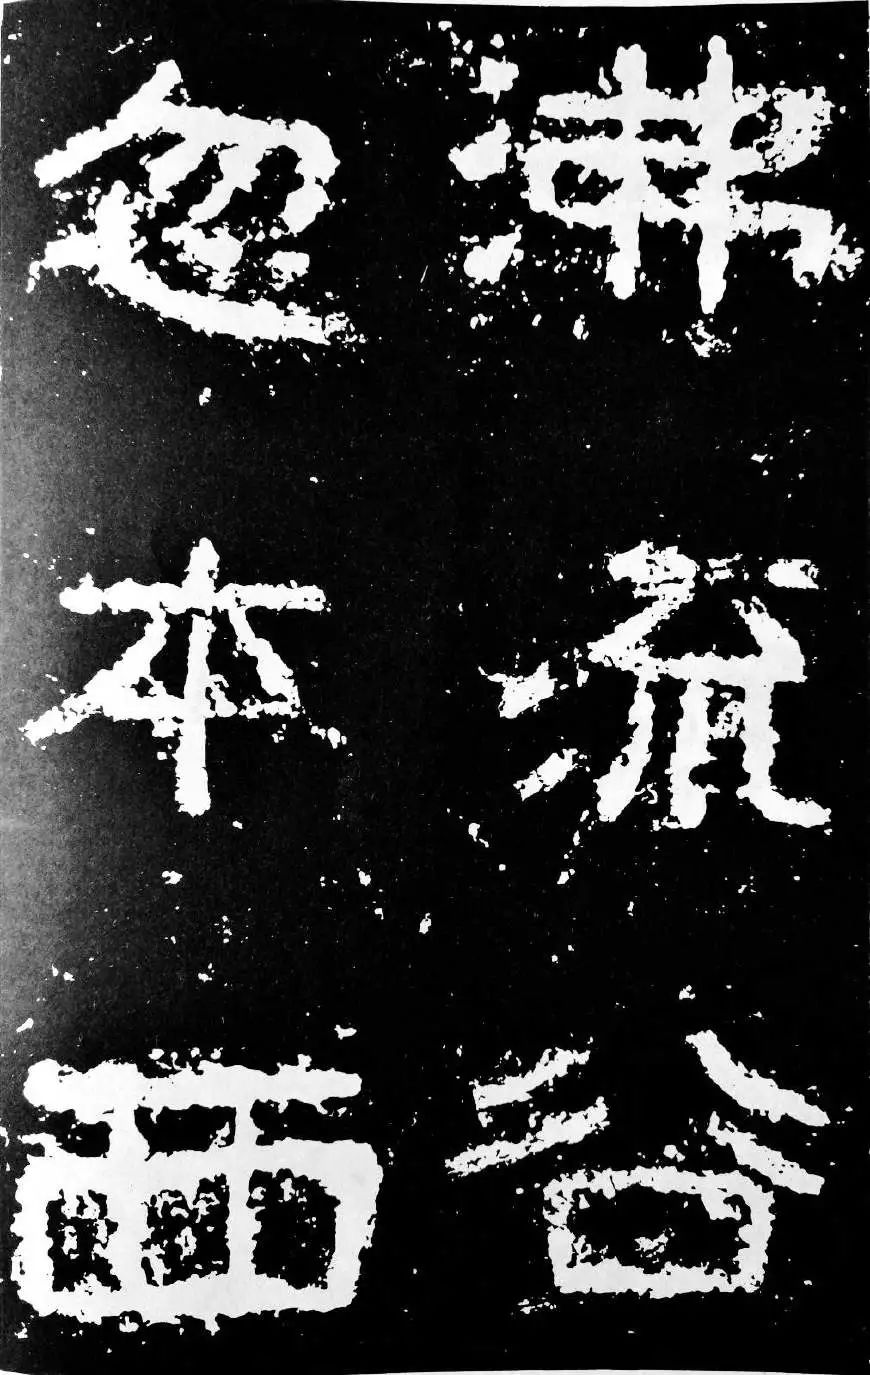 沸流谷
忽本西